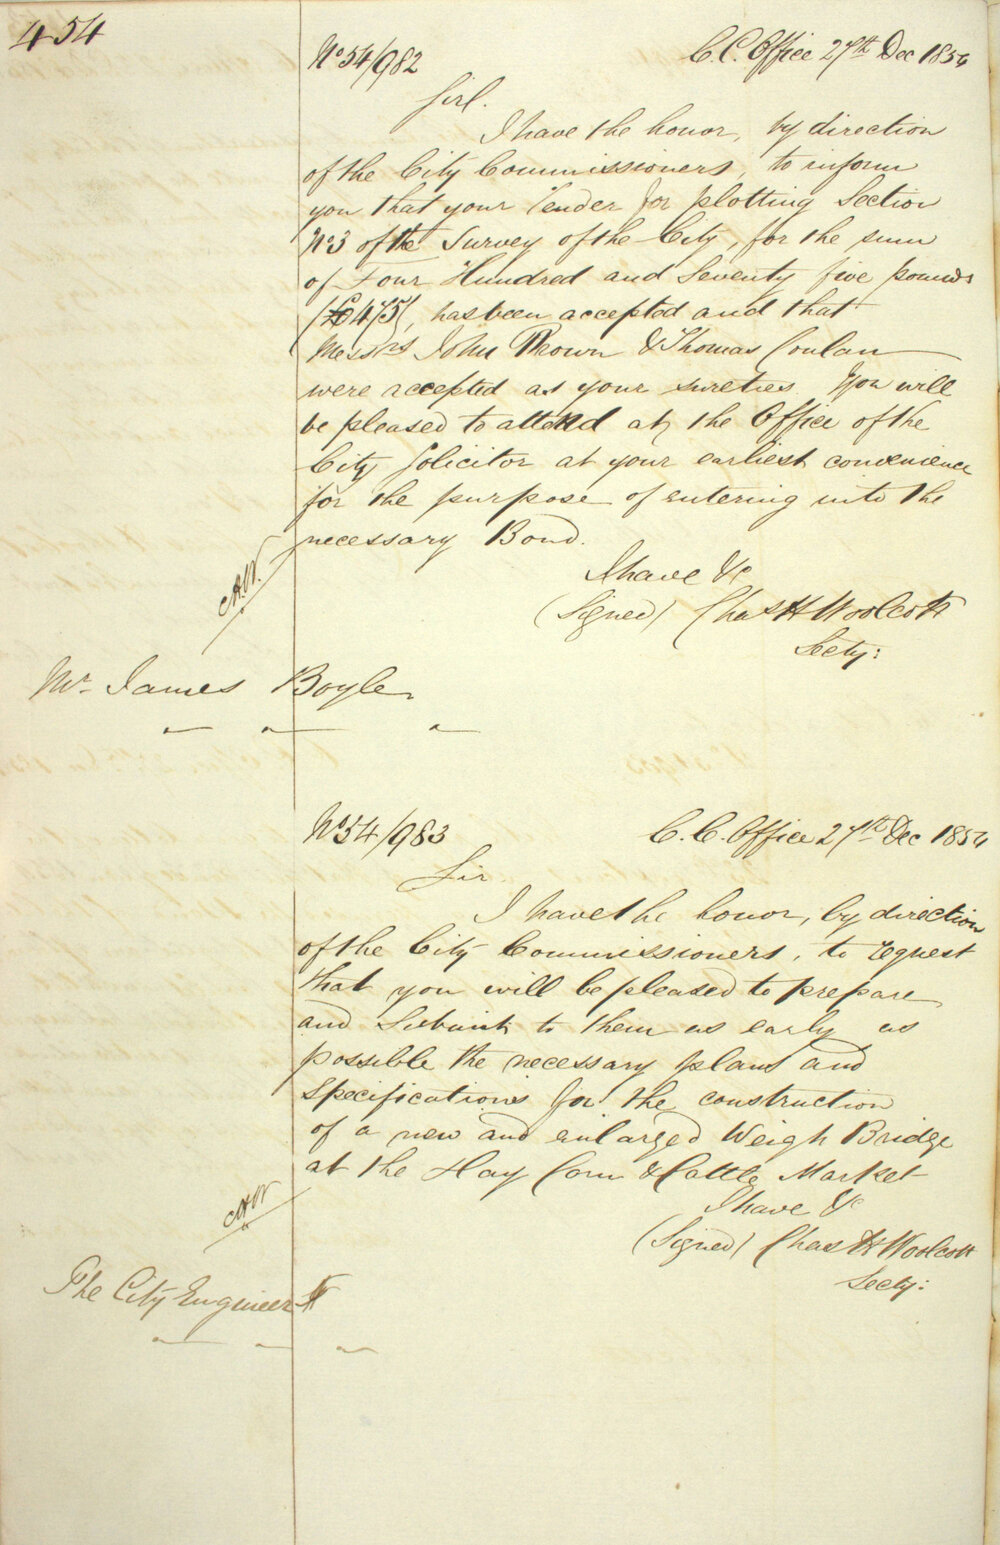 454
No 54/982 C.C. Office 27th Dec 1854
Sir.
I have the honor, by direction
of the City Commissioners, to inform
you that your Tender for plotting Section
No 3 of the Survey of the City, for the sum
of Four Hundred and Seventy five pounds
(£475), has been accepted and that
Messrs John Brown & Thomas Conlan
were accepted as your sureties. You will
be pleased to attend at the Office of the
City Solicitor at your earliest convenience
for the purpose of entering into the
necessary Bond.
I have &c
(Signed) Chas H Woolcott
Secty:
Mr James Boyle
No 54/983 C.C. Office 27th Dec 1854
Sir
I have the honor, by direction
of the City Commissioners, to request
that you will be pleased to prepare
and Submit to them as early as
possible the necessary plans and
Specifications for the construction
of a new and enlarged Weigh Bridge
at the Hay Corn & Cattle Market
I have &c
(Signed) Chas H Woolcott
Secty:
The City Engineer